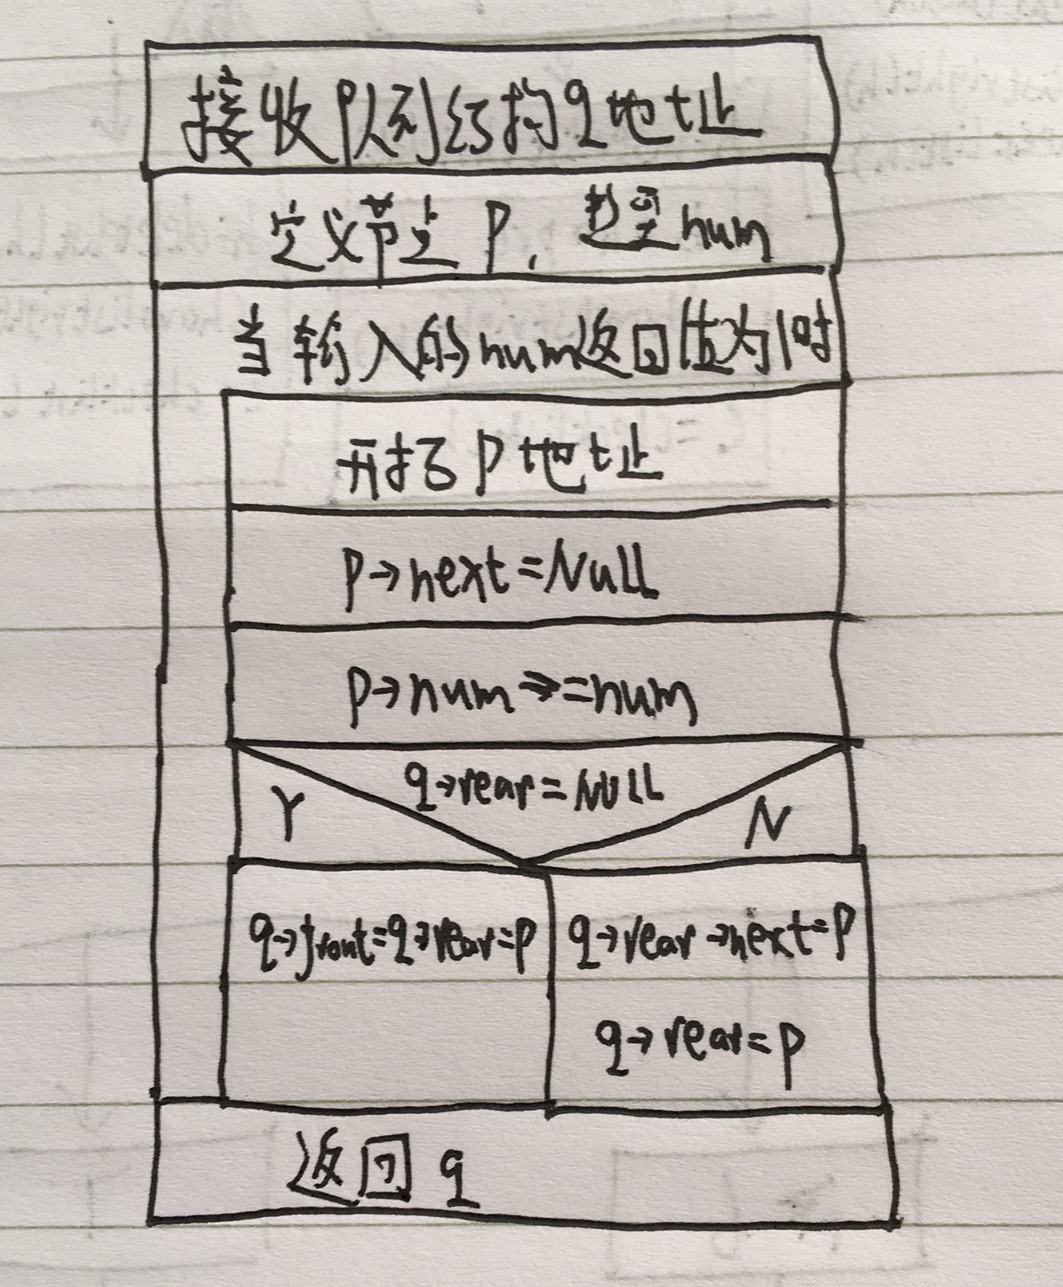 接收队列结构q地址
定义节点 P, 变量num
当输入的num返回值为1时
开拓P地址
P→next=Null
P→num→=num
q→rear=NULL
Y
N
q→front=q→rear=P
q→rear→next=P
q→rear=P
返回 q